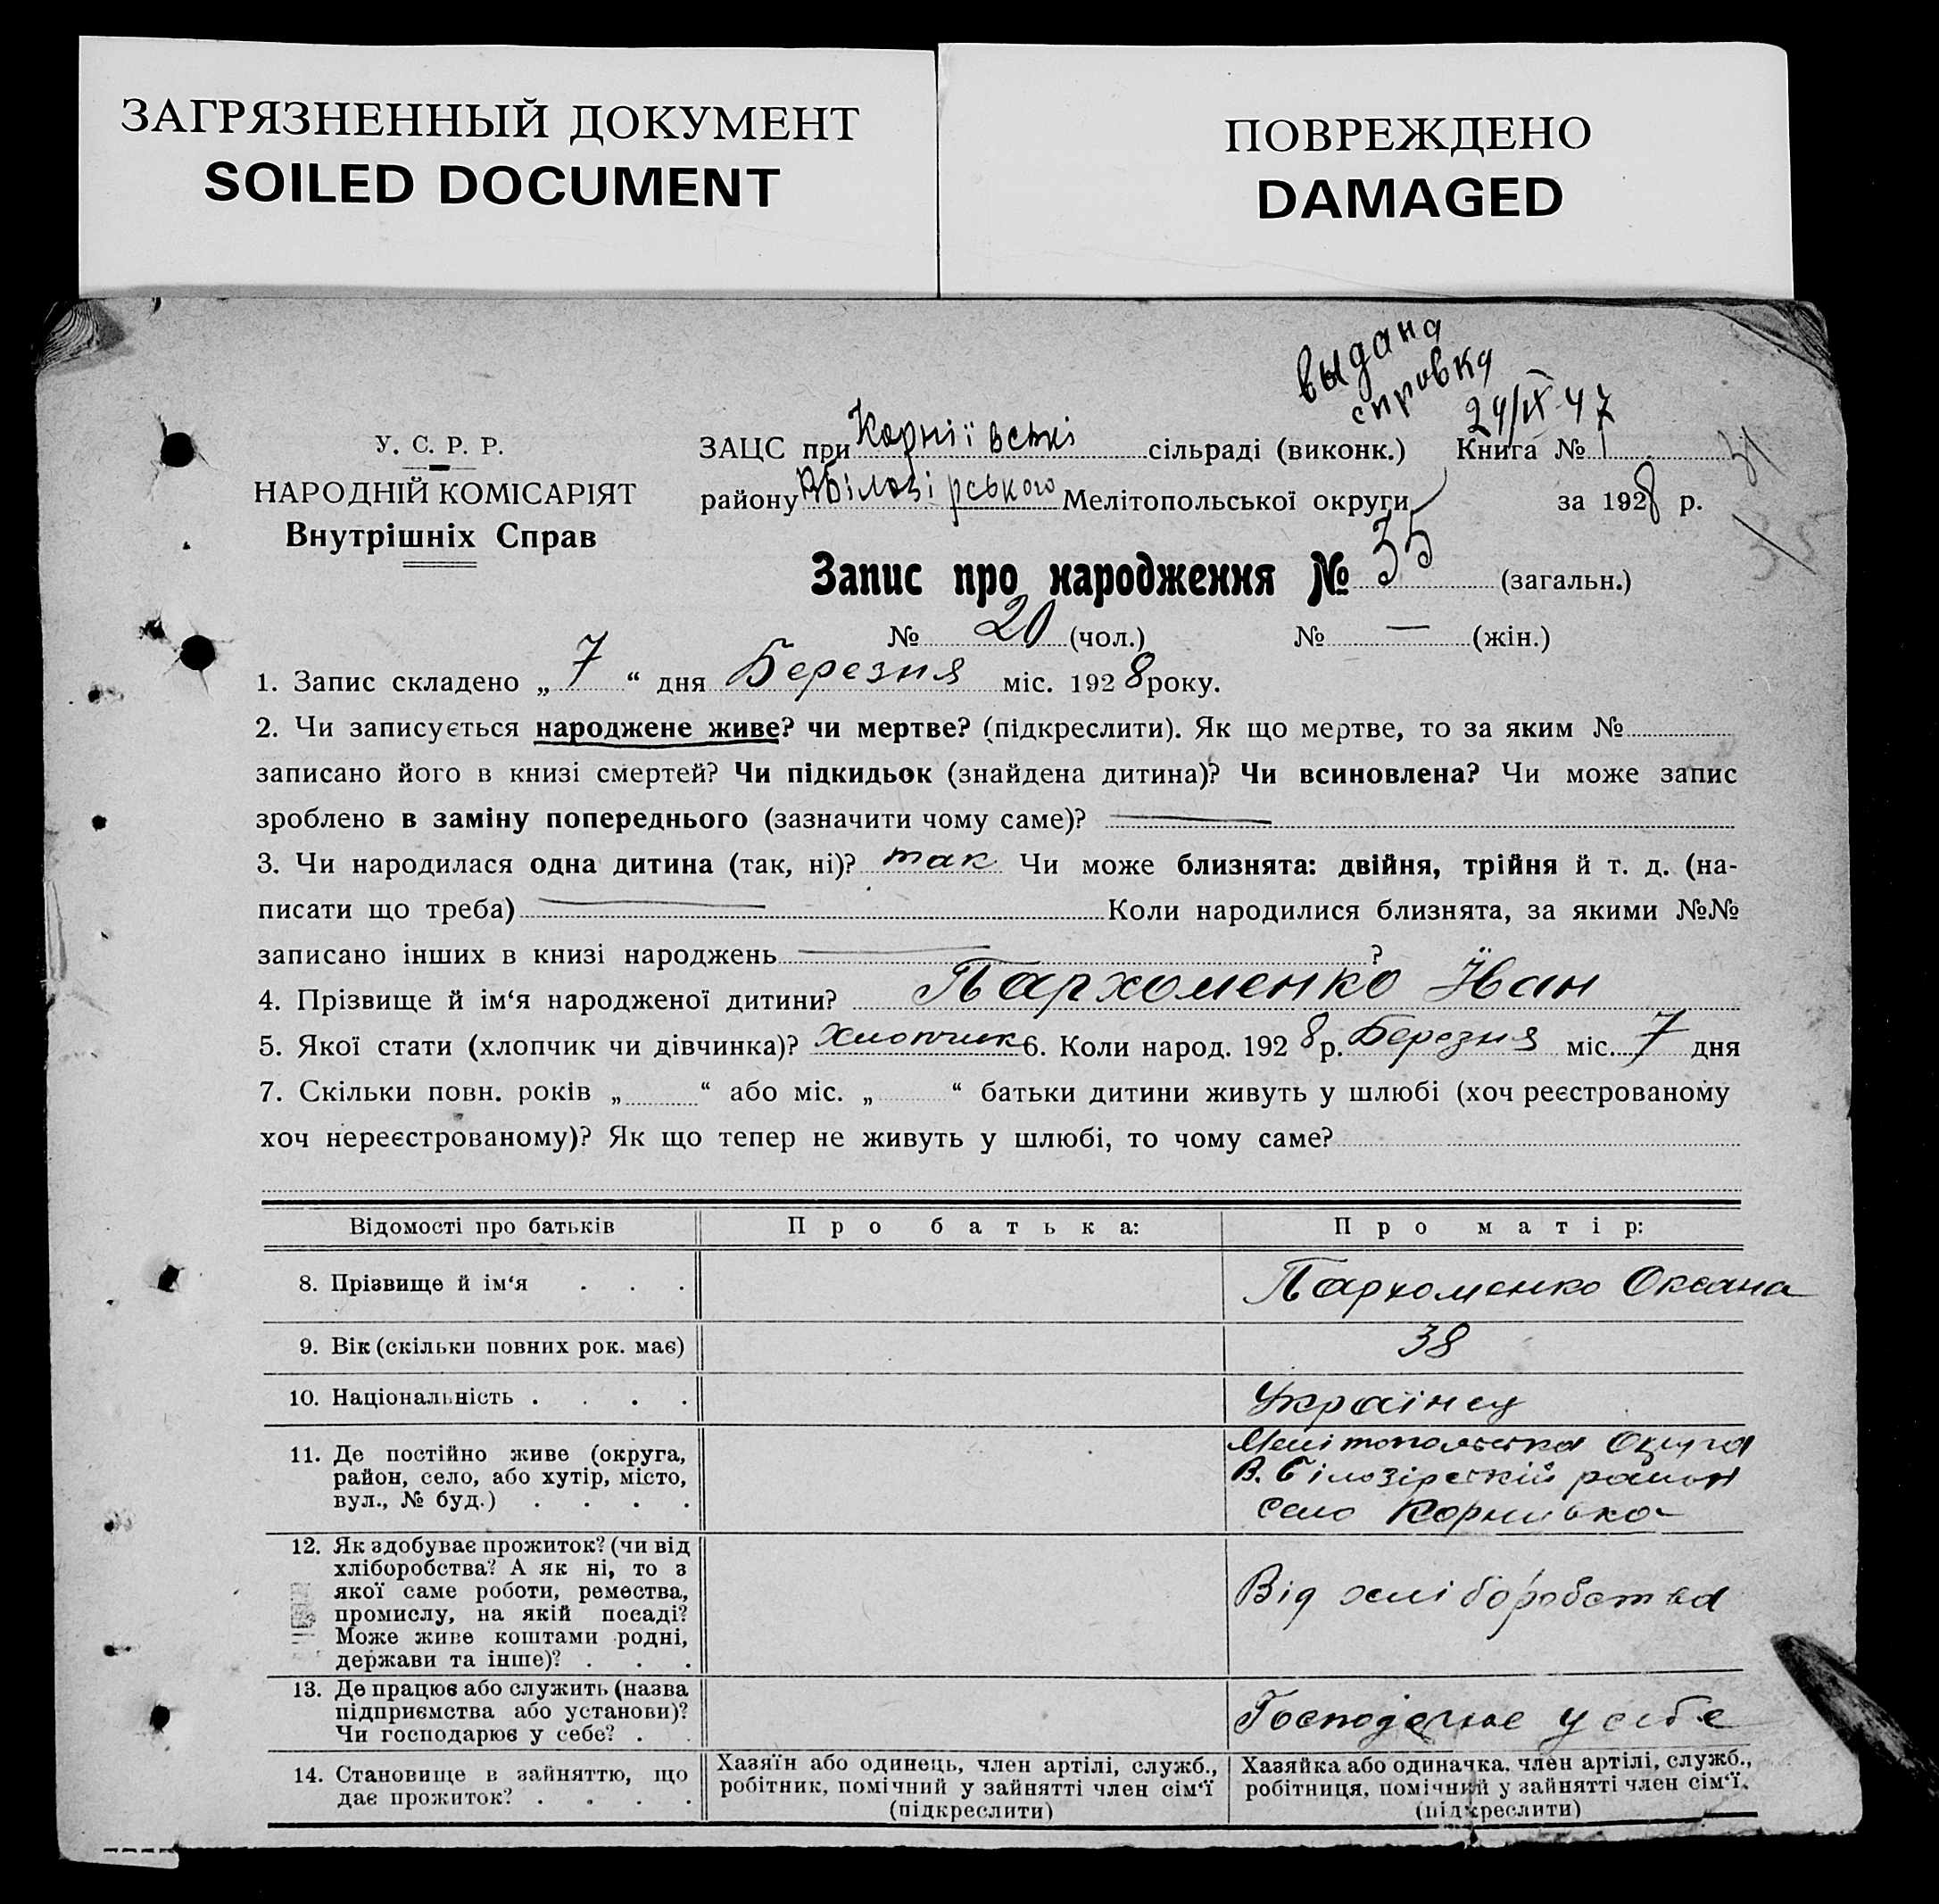 ЗАГРЯЗНЕННЫЙ ДОКУМЕНТ
SOILED DOCUMENT
ПОВРЕЖДЕНО
DAMAGED
выдана
справка
24/IX 47
У. С. Р. Р.
НАРОДНІЙ КОМІСАРІЯТ
Внутрішніх Справ
ЗАЦС при Корніївські сільраді (виконк.) Книга № 1
району Вбілозірського Мелітопольської округи за 1928 р.
31
35
Запис про народження № 35 (загальн.)
№ 20 (чол.) № — (жін.)
1. Запис складено „ 7 “ дня Березня міс. 1928 року.
2. Чи записується народжене живе? чи мертве? (підкреслити). Як що мертве, то за яким №
записано його в книзі смертей? Чи підкидьок (знайдена дитина)? Чи всиновлена? Чи може запис
зроблено в заміну попереднього (зазначити чому саме)? —
3. Чи народилася одна дитина (так, ні)? так Чи може близнята: двійня, трійня й т. д. (на-
писати що треба) — Коли народилися близнята, за якими №№
записано інших в книзі народжень — ?
4. Прізвище й ім‘я народженої дитини? Пархоменко Іван
5. Якої стати (хлопчик чи дівчинка)? Хлопчик 6. Коли народ. 1928 р. Березня міс. 7 дня
7. Скільки повн. років „ “ або міс. „ “ батьки дитини живуть у шлюбі (хоч реєстрованому
хоч нереєстрованому)? Як що тепер не живуть у шлюбі, то чому саме?
Відомості про батьків Про батька: Про матір:
8. Прізвище й ім‘я . . . Пархоменко Оксана
9. Вік (скільки повних рок. має) 38
10. Національність . . . . Українец
11. Де постійно живе (округа,
район, село, або хутір, місто,
вул., № буд.) . . . .
Мелітопольська Округа
В. Білозірскій район
село Корниівка
12. Як здобуває прожиток? (чи від
хліборобства? А як ні, то з
якої саме роботи, ремества,
промислу, на якій посаді?
Може живе коштами родні,
держави та інше)? . . .
Від хліборобства
13. Де працює або служить (назва
підприємства або установи)?
Чи господарює у себе? . .
Господарює у себе
14. Становище в зайняттю, що
дає прожиток? . . . .
Хазяїн або одинець, член артілі, служб.,
робітник, помічний у зайнятті член сім‘ї
(підкреслити)
Хазяйка або одиначка, член артілі, служб.,
робітниця, помічний у зайнятті член сім‘ї.
(підкреслити)